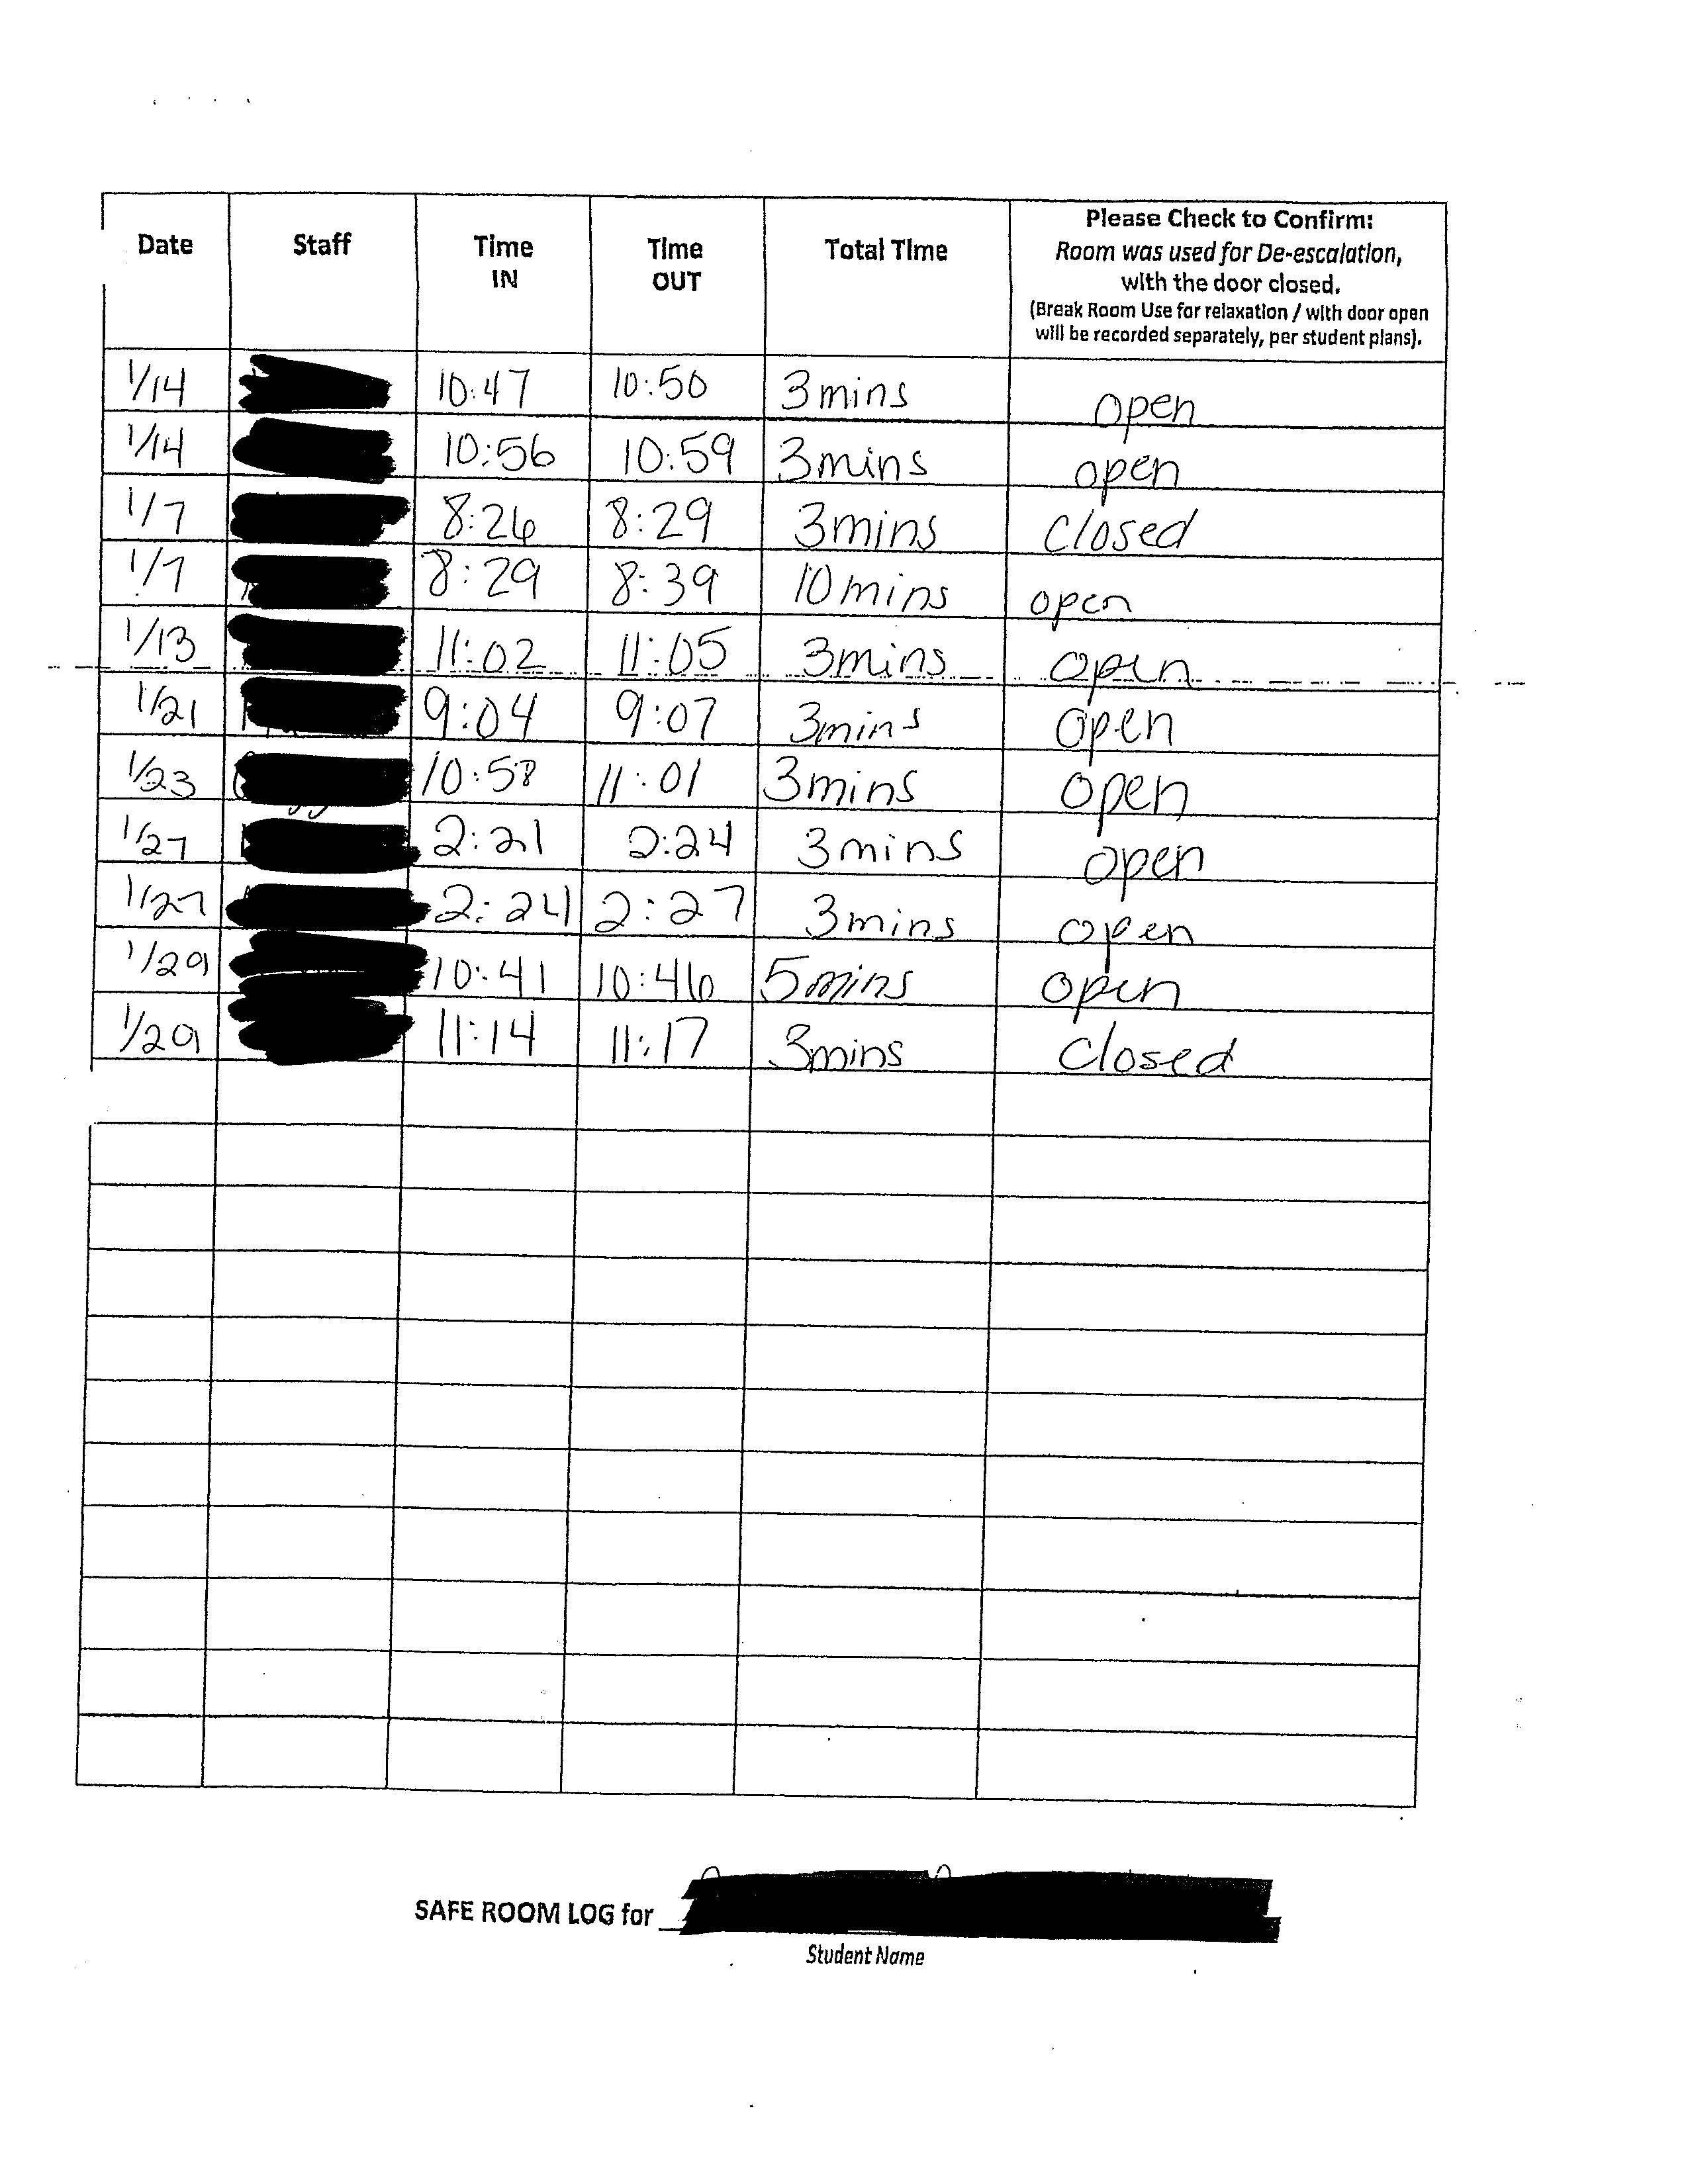 Date Staff Time IN Time OUT Total Time Please Check to Confirm:
Room was used for De-escalation,
with the door closed.
(Break Room Use for relaxation / with door open
will be recorded separately, per student plans).
1/14 10:47 10:50 3 mins open
1/14 10:56 10:59 3 mins open
1/7 8:26 8:29 3 mins closed
1/7 8:29 8:39 10 mins open
1/13 11:02 11:05 3 mins open
1/21 9:04 9:07 3 mins open
1/23 10:58 11:01 3 mins open
1/27 2:21 2:24 3 mins open
1/27 2:24 2:27 3 mins open
1/29 10:41 10:46 5 mins open
1/29 11:14 11:17 3 mins closed
SAFE ROOM LOG for
Student Name